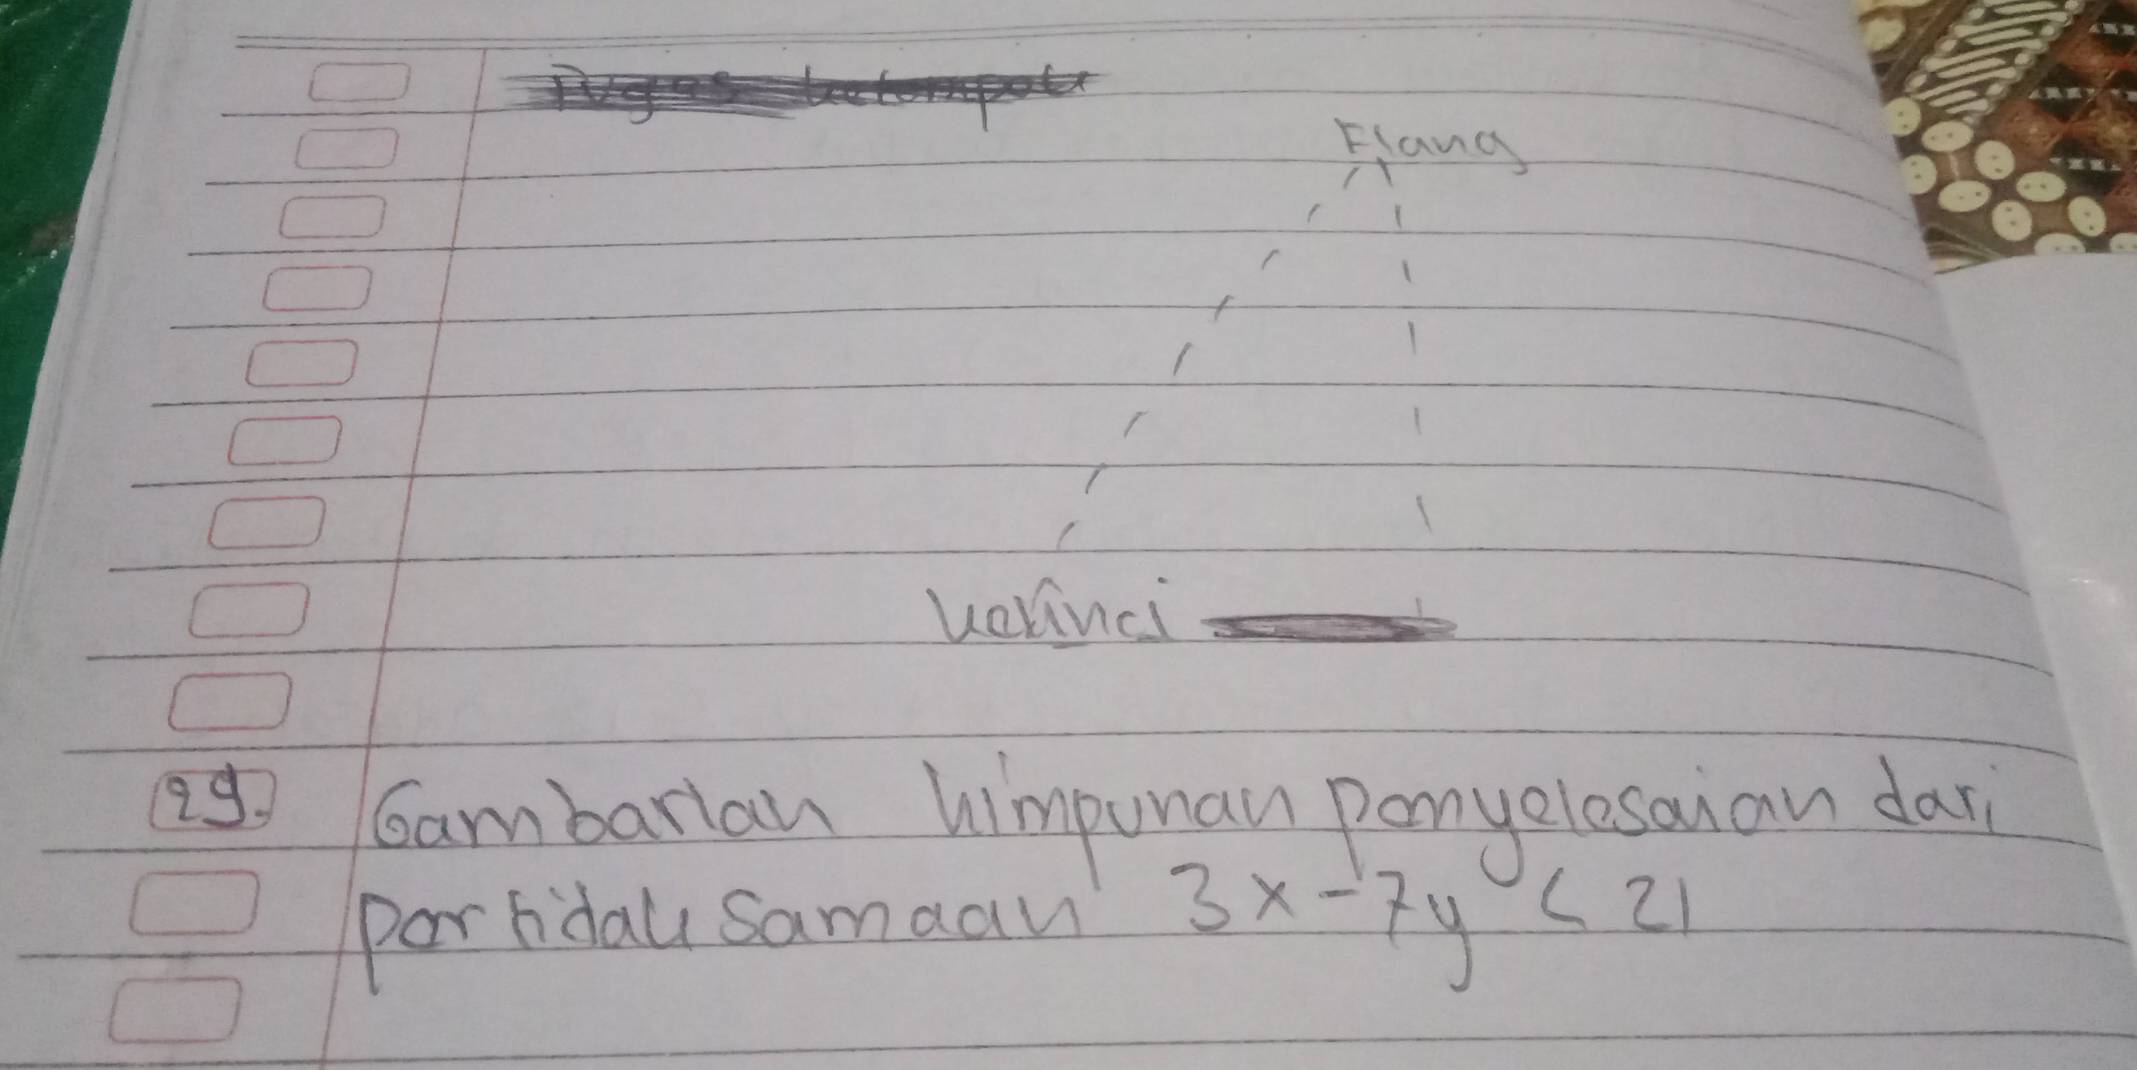 Elang
Kelinci
29. Gambarkan himpunan penyelesaian dari
pertidaksamaan 3x - 7y < 21